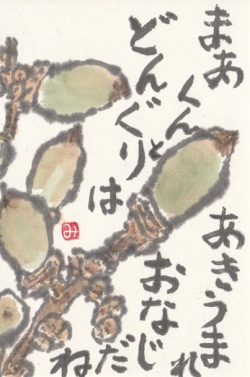 まあ
くんと
どんぐり
は
あきうまれ
おなじ
だね
み